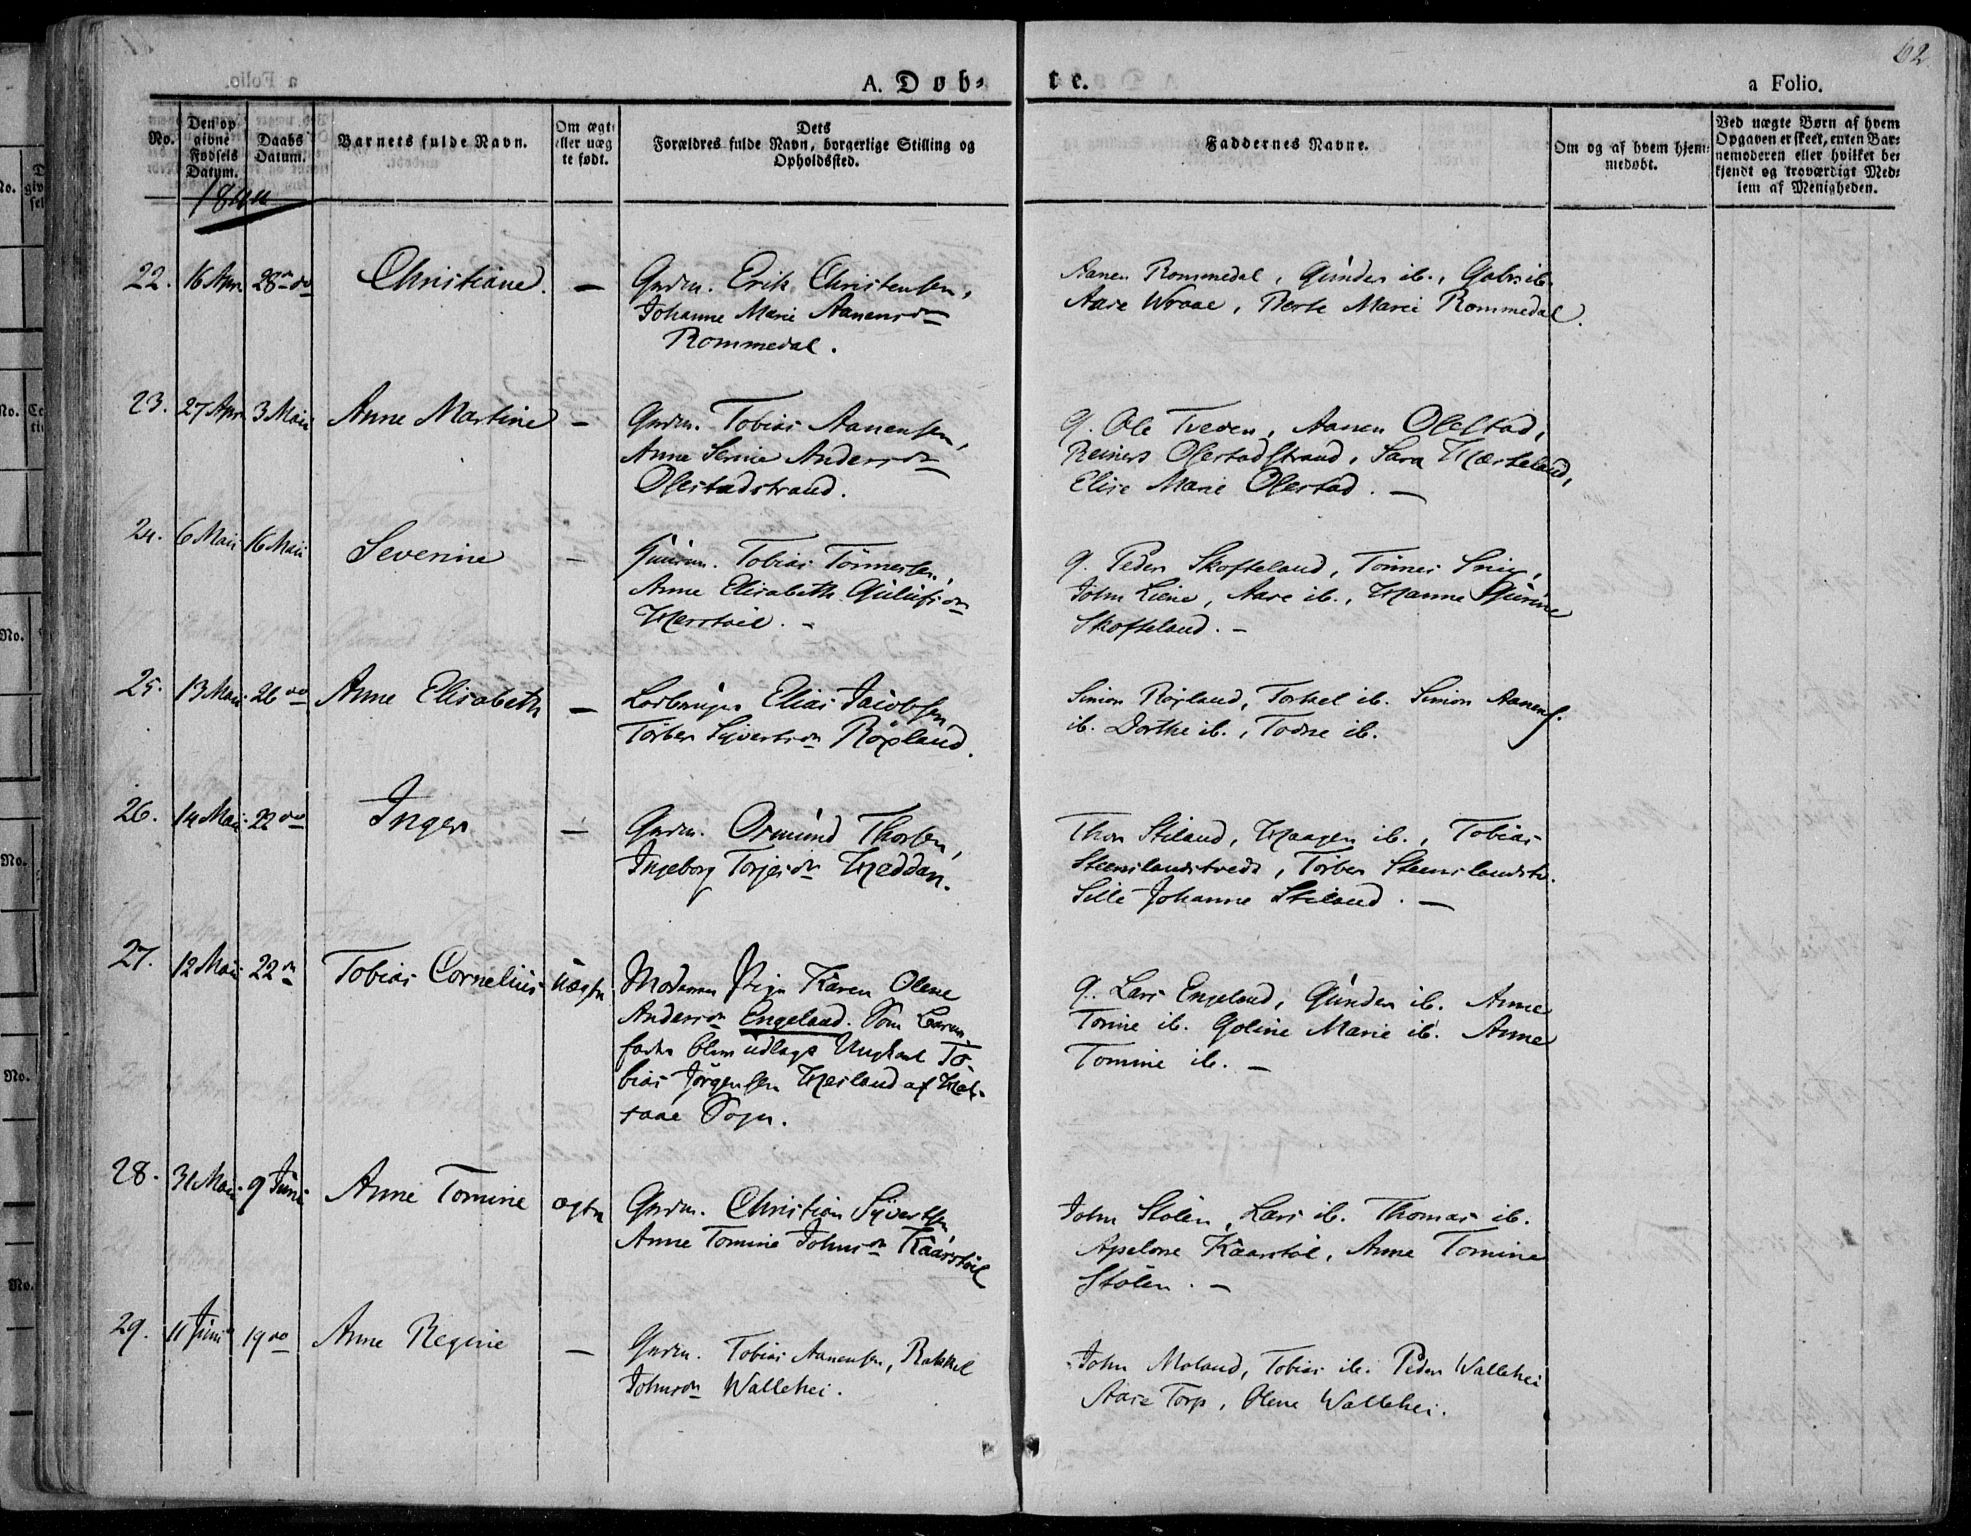 62
A. Døb-
te.
a Folio.
No.
Den op
givne
Fødsels
Datum.
Daabs
Datum.
Barnets fulde Navn.
Om ægte
eller uæg
te født.
Dets
Forældres fulde Navn, borgerlige Stilling og
Opholdssted.
Faddernes Navne.
Om og af hvem hjem-
medøbt.
Ved uægte Børn af hvem
Opgaven er skeet, enten Bar-
nemoderen eller hvilket be-
kjendt og troværdigt Med-
lem af Menigheden.
1844
22. 16 Apr. 28 do Christiane. —
Gmdm. Erik Christensen,
Johanne Marie Aanensdn
Rommedal.
Aanen Rommedal, Gunder ib., Gabr. ib.
Aase Wraae, Berte Marie Rommedal.
23. 27 Apr. 3 Maii Anne Martine —
Gmdm. Tobias Aanensen,
Anne Serine Andersdn
Ofestadstrand.
g. Ole Tveden, Aanen Ofestad,
Reiners Ofestadstrand, Sara Hærkeland,
Elise Marie Ofestad. —
24. 6 Maii 16 Maii Severine —
Gmdm. Tobias Tönnesen,
Anne Elisabeth Gulufsdn
Herstøl. —
g. Peder Skofteland, Tönnes Snig,
John Liene, Aase ib., Hanne Gurine
Skofteland. —
25. 13 Maii 26 do Anne Elisabeth —
Elias Jacobsen,
Torber Syvertsdn Röyland.
Simon Röyland, Torkel ib. Simon Aanens.
ib. Dorthe ib., Todne ib.
26. 14 Maii 22 do Inger —
Gmdm. Ormund Thorsen,
Ingeborg Torjesdn Heddan.
Thor Stiland, Haagen ib., Tobias
Steenslandstvedt, Torber Steenslandstv.
Sille Johanne Stiland. —
27. 12 Maii 22 dn Tobias Cornelius uægte
Moderen Pige Karen Olene
Andersdn Engeland. Som Barne-
fader blev udlagt Ungkarl To-
bias Jörgensen Hesland af Hol-
Sogn.
g. Lars Engeland, Gunder ib. Anne
Tonine ib. Goline Marie ib. Anne
Tomine ib. —
28. 31 Maii 9 Juni Anne Tomine ægte
Gmdm. Christian Syvertsen,
Anne Tomine Johnsdn Kaarstöl
John Stölen, Lars ib. Thomas ib.
Apelone Kaarstöl, Anne Tomine
Stölen. —
29. 11 Juni 19 do Anne Regine —
Gmdm. Tobias Aanensen, Rakkel
Johnsdn Wallehei.
John Moland, Tobias ib. Peder Wallehei
Aase Torp, Olene Wallehei.